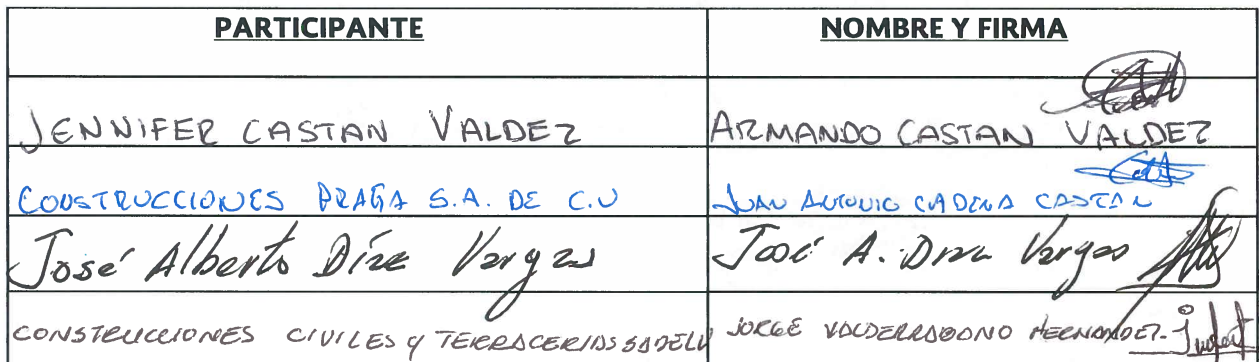 PARTICIPANTE NOMBRE Y FIRMA
JENNIFER CASTAN VALDEZ ARMANDO CASTAN VALDEZ
CONSTRUCCIONES PRAGA S.A. DE C.V JUAN ANTONIO CADENA CASTAN
José Alberto Díaz Vargas José A. Díaz Vargas
CONSTRUCCIONES CIVILES Y TERRACERIAS SADECV JORGE HERNANDEZ